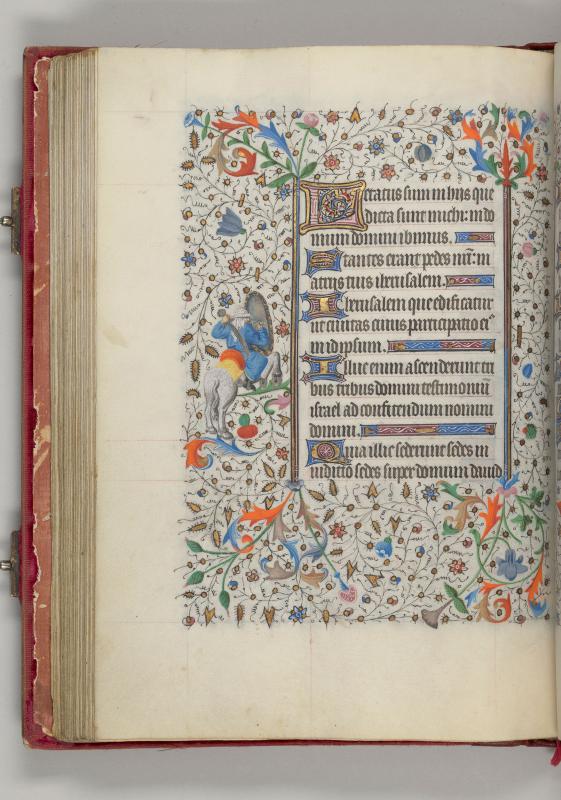 Letatus sum in hys que
dicta sunt michi: in do
mum domini ibimus.
Stantes erant pedes nr̄i: in
atriis tuis iherusalem.
Iherusalem que edificatur
ut ciuitas cuius participatio ei⁹
in idipsum.
Illuc enim ascenderunt tri
bus tribus domini testimoniū
israel ad confitendum nomini
domini.
Quia illic sederunt sedes in
iudicio sedes super domum dauid